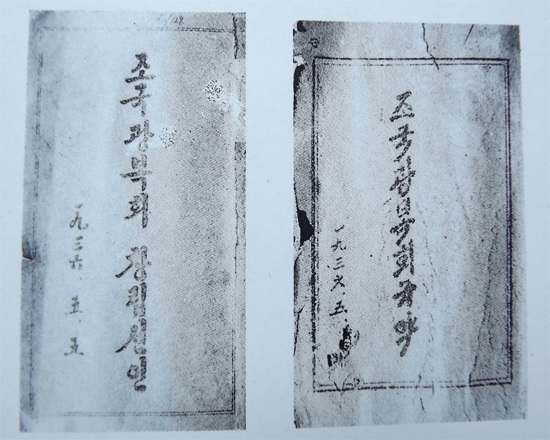 조국광복회 창립선언
一九三六.五.五
조국광복회규약
一九三六.五.